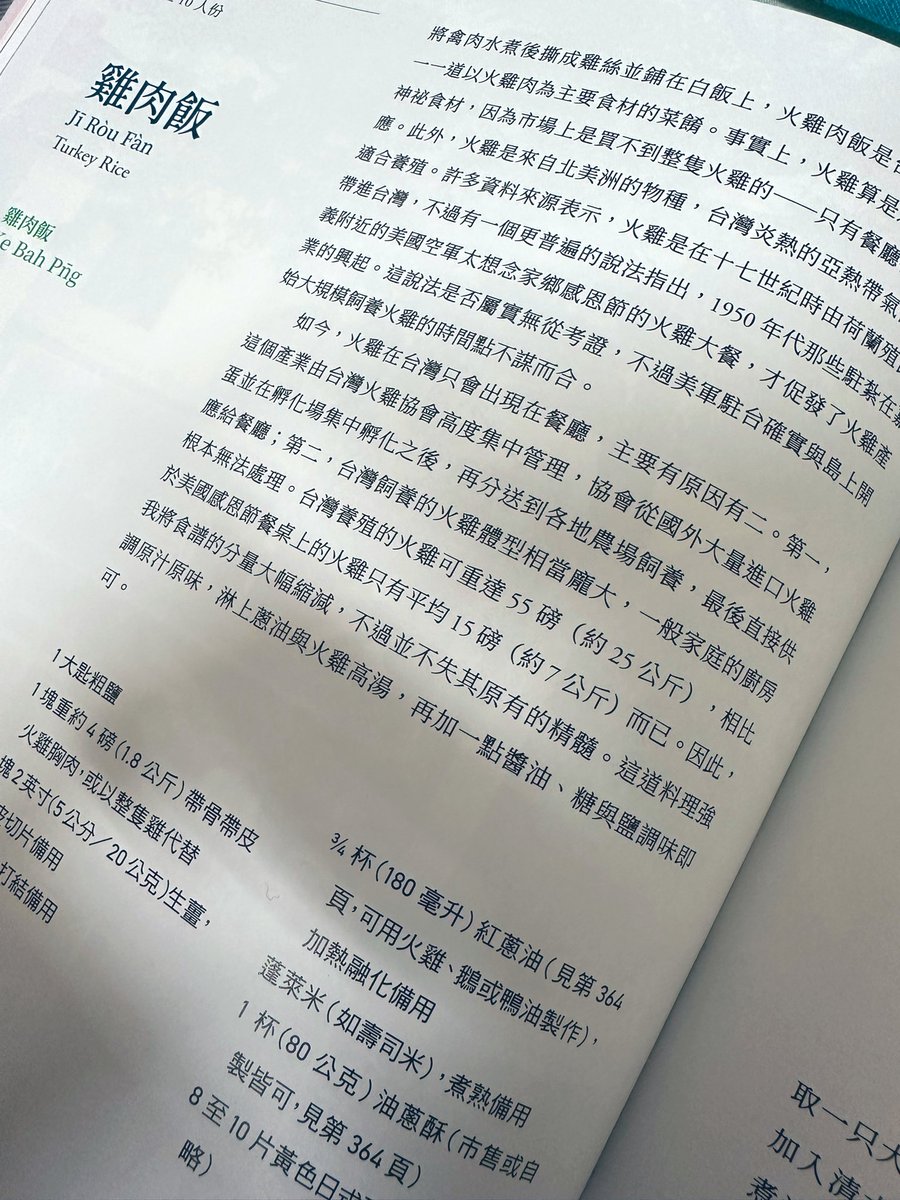 10 人份
雞肉飯
Jī Ròu Fàn
Turkey Rice
雞肉飯
Bah Pn̄g
將禽肉水煮後撕成雞絲並鋪在白飯上，火雞肉飯是
一一道以火雞肉為主要食材的菜餚。事實上，火雞算是
神祕食材，因為市場上是買不到整隻火雞的——只有餐廳
應。此外，火雞是來自北美洲的物種，台灣炎熱的亞熱帶氣
適合養殖。許多資料來源表示，火雞是在十七世紀時由荷蘭殖
帶進台灣，不過有一個更普遍的說法指出，1950 年代那些駐紮在
義附近的美國空軍太想念家鄉感恩節的火雞大餐，才促發了火雞產
業的興起。這說法是否屬實無從考證，不過美軍駐台確實與島上開
始大規模飼養火雞的時間點不謀而合。
如今，火雞在台灣只會出現在餐廳，主要有原因有二。第一，
這個產業由台灣火雞協會高度集中管理，協會從國外大量進口火雞
蛋並在孵化場集中孵化之後，再分送到各地農場飼養，最後直接供
應給餐廳；第二，台灣飼養的火雞體型相當龐大，一般家庭的廚房
根本無法處理。台灣養殖的火雞可重達 55 磅（約 25 公斤），相比
於美國感恩節餐桌上的火雞只有平均 15 磅（約 7 公斤）而已。因此，
我將食譜的分量大幅縮減，不過並不失其原有的精髓。這道料理強
調原汁原味，淋上蔥油與火雞高湯，再加一點醬油、糖與鹽調味即
可。
1 大匙粗鹽
1 塊重約 4 磅（1.8 公斤）帶骨帶皮
火雞胸肉，或以整隻雞代替
塊 2 英寸（5 公分／20 公克）生薑，
切片備用
打結備用
¾ 杯（180 毫升）紅蔥油（見第 364
頁，可用火雞、鵝或鴨油製作），
加熱融化備用
蓬萊米（如壽司米），煮熟備用
1 杯（80 公克）油蔥酥（市售或自
製皆可，見第 364 頁）
8 至 10 片黃色日式
略）
取一只大
加入清
煮